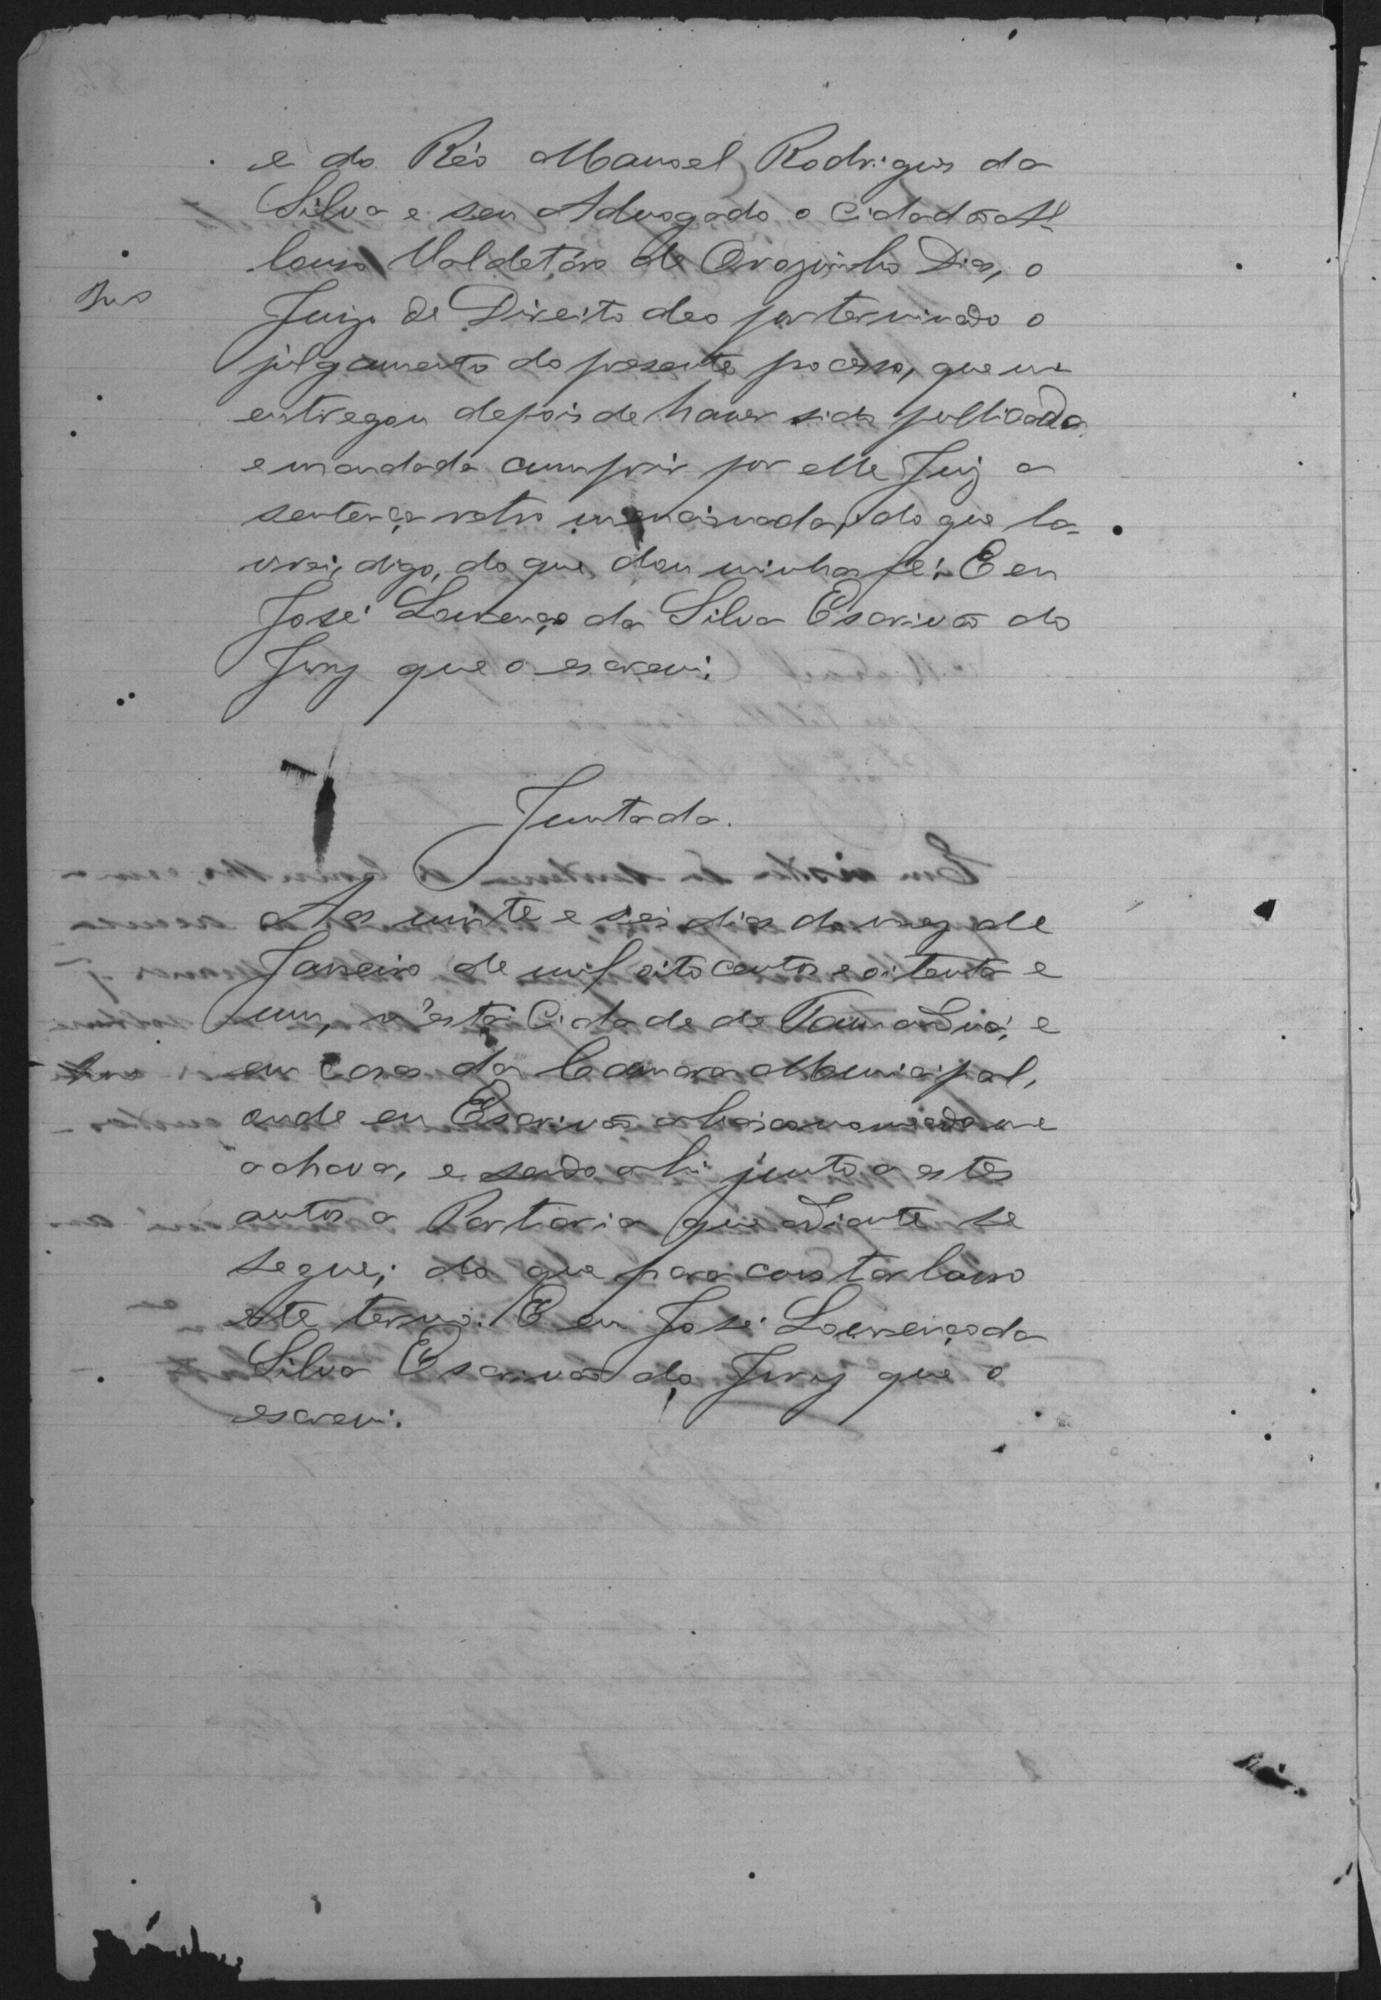 e do Réo Manoel Rodrigues da
Silva e seu Advogado o Cidadão
Valdetáro de Dias, o
Juiz de Direito deo por terminado o
julgamento do presente processo, que me
entregou depois de haver sido publicada
e mandada cumprir por elle Juiz a
sentença retro mencionada, do que la-
vrei, digo, do que dou minha fé. E eu
José Lourenço da Silva Escrivão do
Jury que o escrevi.
Juntada.
Aos vinte e seis dias do mez de
Janeiro de mil oito centos e oitenta e
um, n'esta Cidade de Tamanduá, e
em Casa da Camara Municipal,
onde eu Escrivão abaixo nomeado me
achava, e sendo ahi junto a estes
autos a Portaria que adiante se
segue; do que para constar lavro
este termo. E eu José Lourenço da
Silva Escrivão do Jury que o
escrevi.